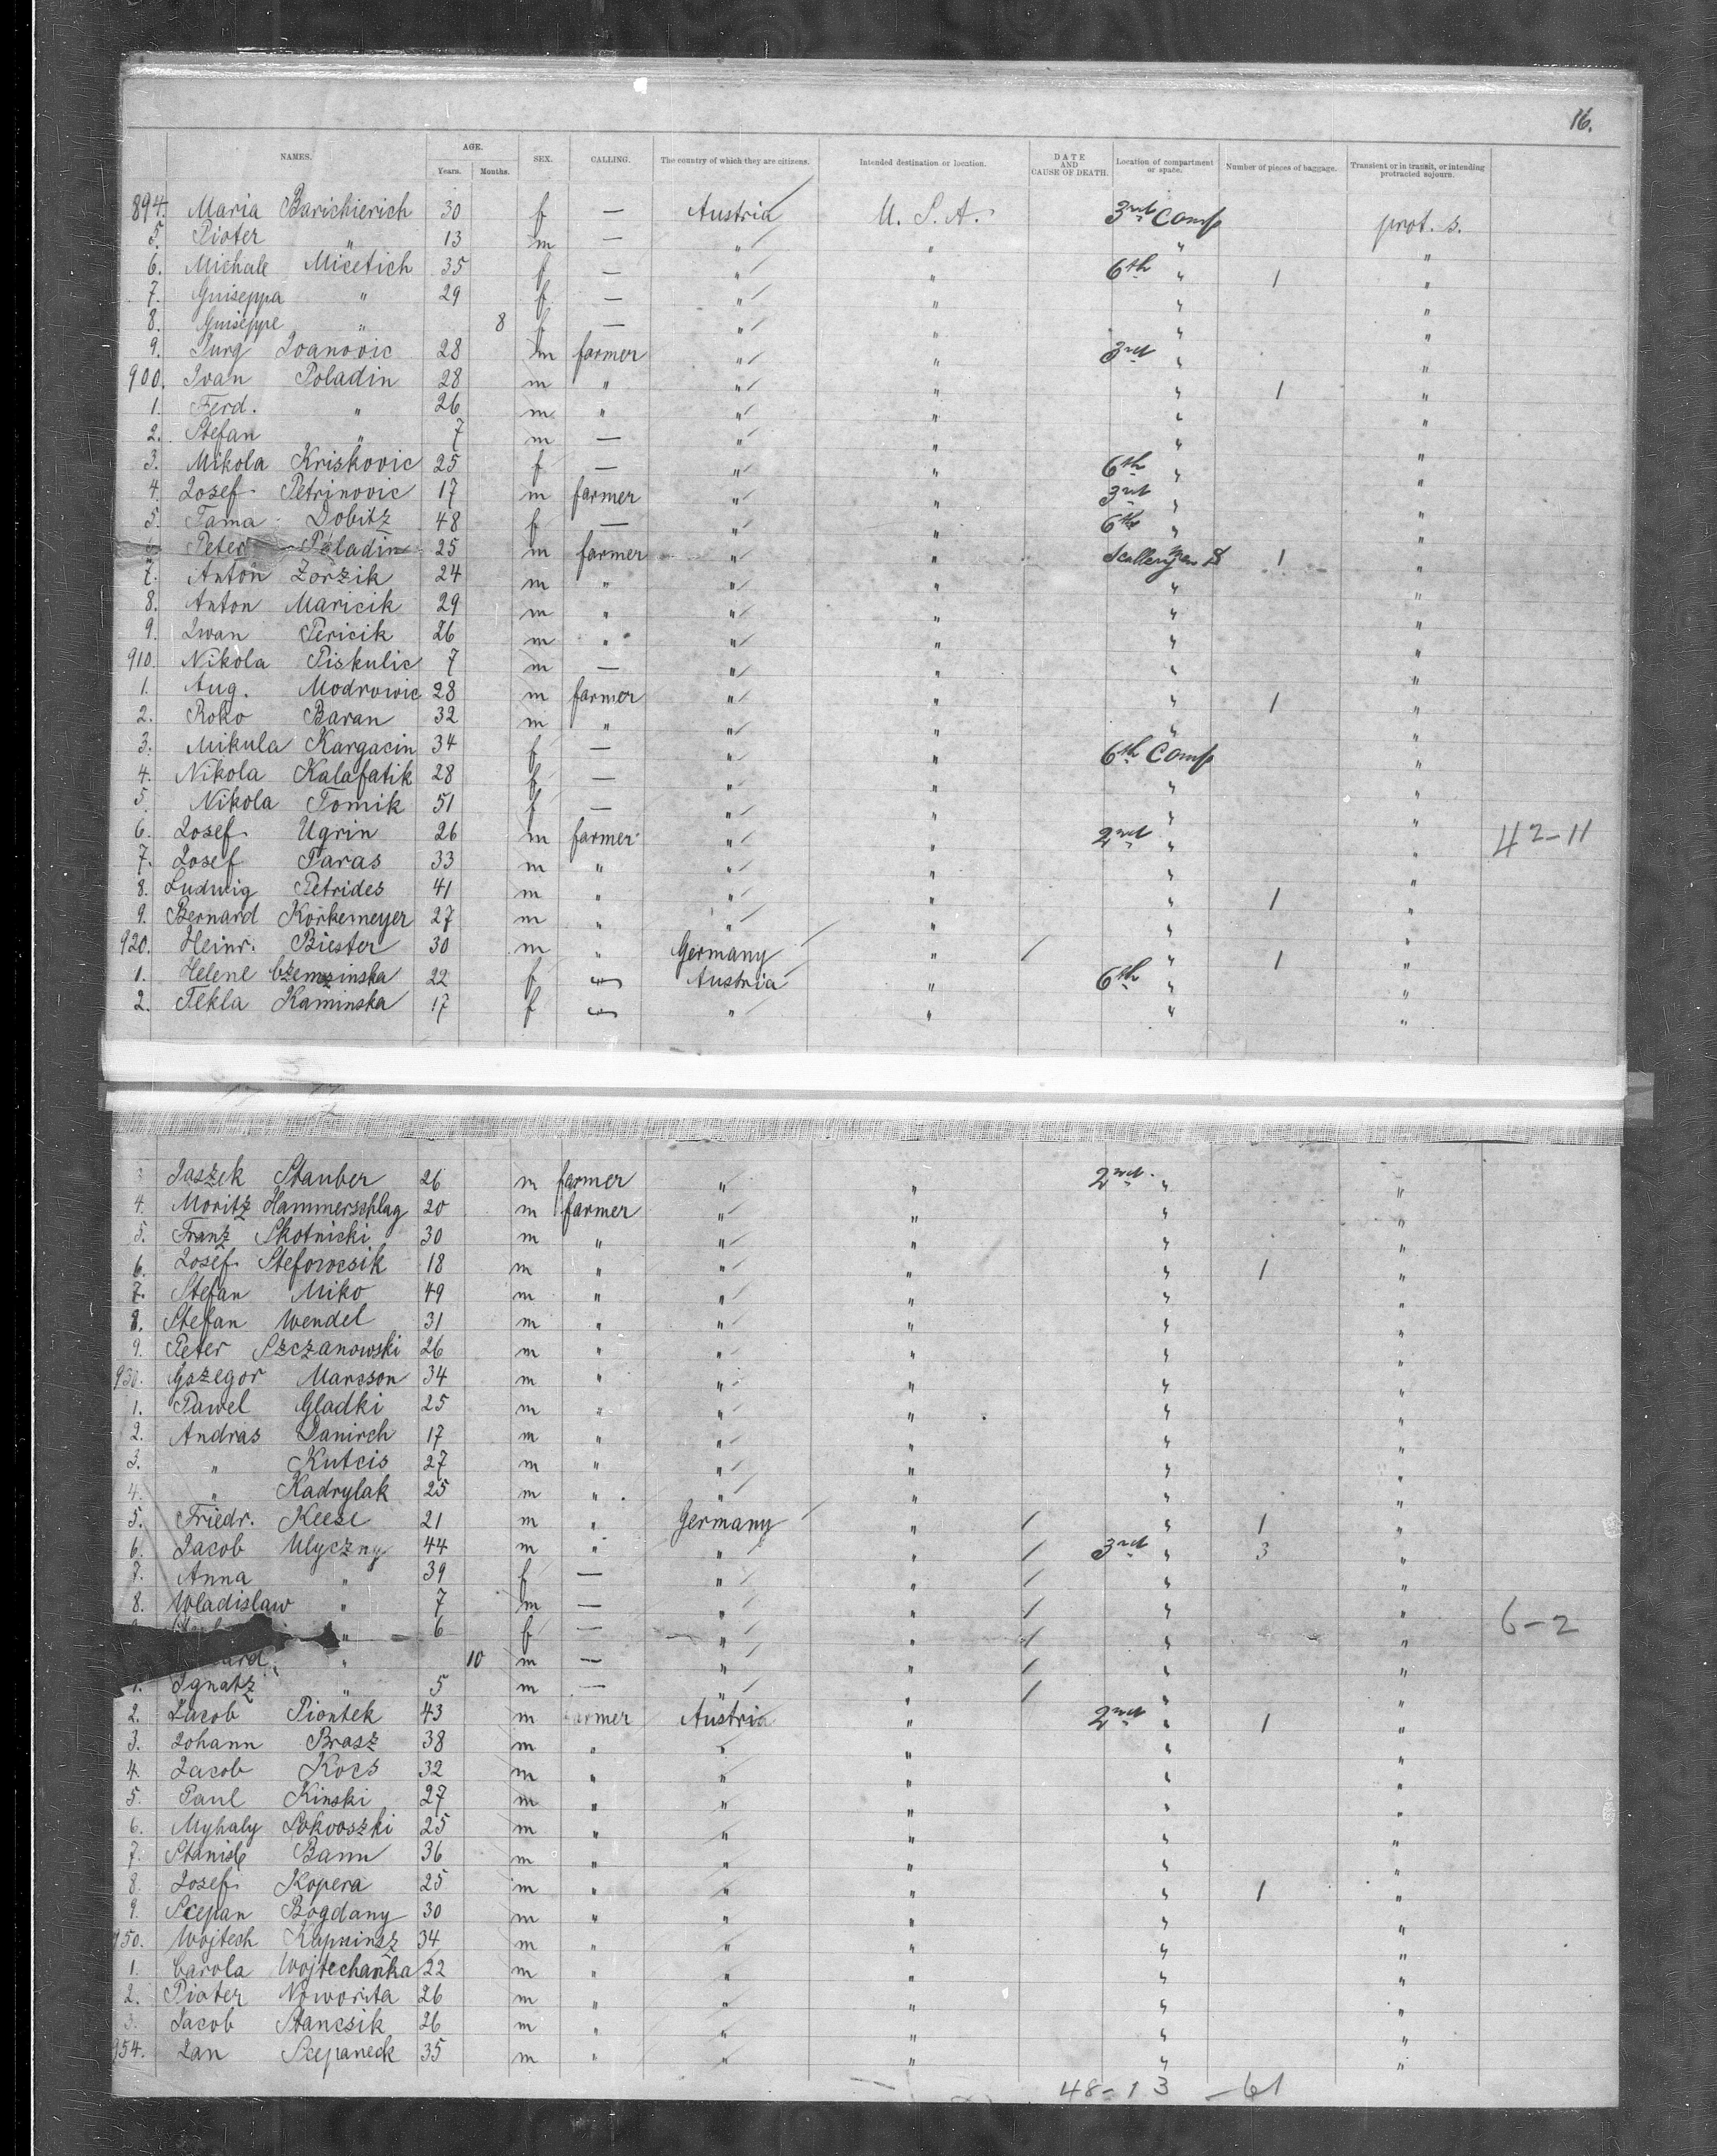 16.
NAMES. AGE. Years. Months. SEX. CALLING. The country of which they are citizens. Intended destination or location. DATE AND CAUSE OF DEATH. Location of compartment or space. Number of pieces of baggage. Transient or in transit, or intending protracted sojourn.
894. Maria Barichierich 30 f — Austria U. S. A. 3rd Comp prot. s.
5. Pioter " 13 m — " " " "
6. Michale Micetich 35 f — " " 6th " 1 "
7. Guiseppa " 29 f — " " " "
8. Guiseppe " 8 f — " " " "
9. Jurg Ivanovic 28 m farmer " " 3rd " "
900. Ivan Poladin 28 m " " " " 1 "
1. Ferd. " 26 m " " " " "
2. Stefan " 7 m — " " " "
3. Mikola Kriskovic 25 f — " " 6th " "
4. Josef Petrinovic 17 m farmer " " 3rd " "
5. Tama Dobitz 48 f — " " 6th " "
6. Peter Poladin 25 m farmer " " 1 "
7. Anton Zorzik 24 m " " " " "
8. Anton Maricik 29 m " " " " "
9. Iwan Pericik 26 m " " " " "
910. Nikola Piskulic 7 m — " " " "
1. Aug. Modrowic 28 m farmer " " " 1 "
2. Roko Baran 32 m " " " " "
3. Mikula Kargacin 34 f — " " 6th Comp "
4. Nikola Kalafatik 28 f — " " " "
5. Nikola Tomik 51 f — " " " "
6. Josef Ugrin 26 m farmer " " 2nd " " 42-11
7. Josef Paras 33 m " " " " "
8. Ludwig Petrides 41 m " " " " 1 "
9. Bernard Korkemeyer 27 m " " " " "
920. Heinr. Biester 30 m " Germany " " 1 "
1. Helene Czemzinska 22 f Austria " 6th " "
2. Tekla Kaminska 17 f " " " "
3 Jaszek Stauber 26 m farmer " " 2nd " "
4. Moritz Hammerschlag 20 m farmer " " " "
5. Franz Skotnicki 30 m " " " " "
6. Josef Steforocsik 18 m " " " " 1 "
7. Stefan Miko 49 m " " " " "
8. Stefan Wendel 31 m " " " " "
9. Peter Szczanowski 26 m " " " " "
930. Gazegor Marcsson 34 m " " " " "
1. Pawel Gladki 25 m " " " " "
2. Andras Danirch 17 m " " " " "
3. " Kutcis 27 m " " " " "
4. " Kadrylak 25 m " " " " "
5. Friedr. Keese 21 m " Germany " " 1 "
6. Jacob Ulyczny 44 m " " " 3rd " 3 "
7. Anna " 39 f — " " " "
8. Wladislaw " 7 m — " " " " 6-2
" 6 f — " " " "
" 10 m — " " " "
1. Ignatz " 5 m — " " " "
2. Jacob Piontek 43 m farmer Austria " 2nd " 1 "
3. Johann Brasz 38 m " " " " "
4. Jacob Kocs 32 m " " " " "
5. Paul Kinski 27 m " " " " "
6. Myhaly Sokvoszki 25 m " " " " "
7. Stanisl Bann 36 m " " " " "
8. Josef Kopera 25 m " " " " 1 "
9. Scepan Bogdany 30 m " " " " "
950. Wojtech 34 m " " " " "
1. Carola Wojtechanka 22 m " " " " "
2. Pioter Noworita 26 m " " " " "
3. Jacob Stancsik 26 m " " " " "
954. Jan Scepaneck 35 m " " " " "
48-13 -61